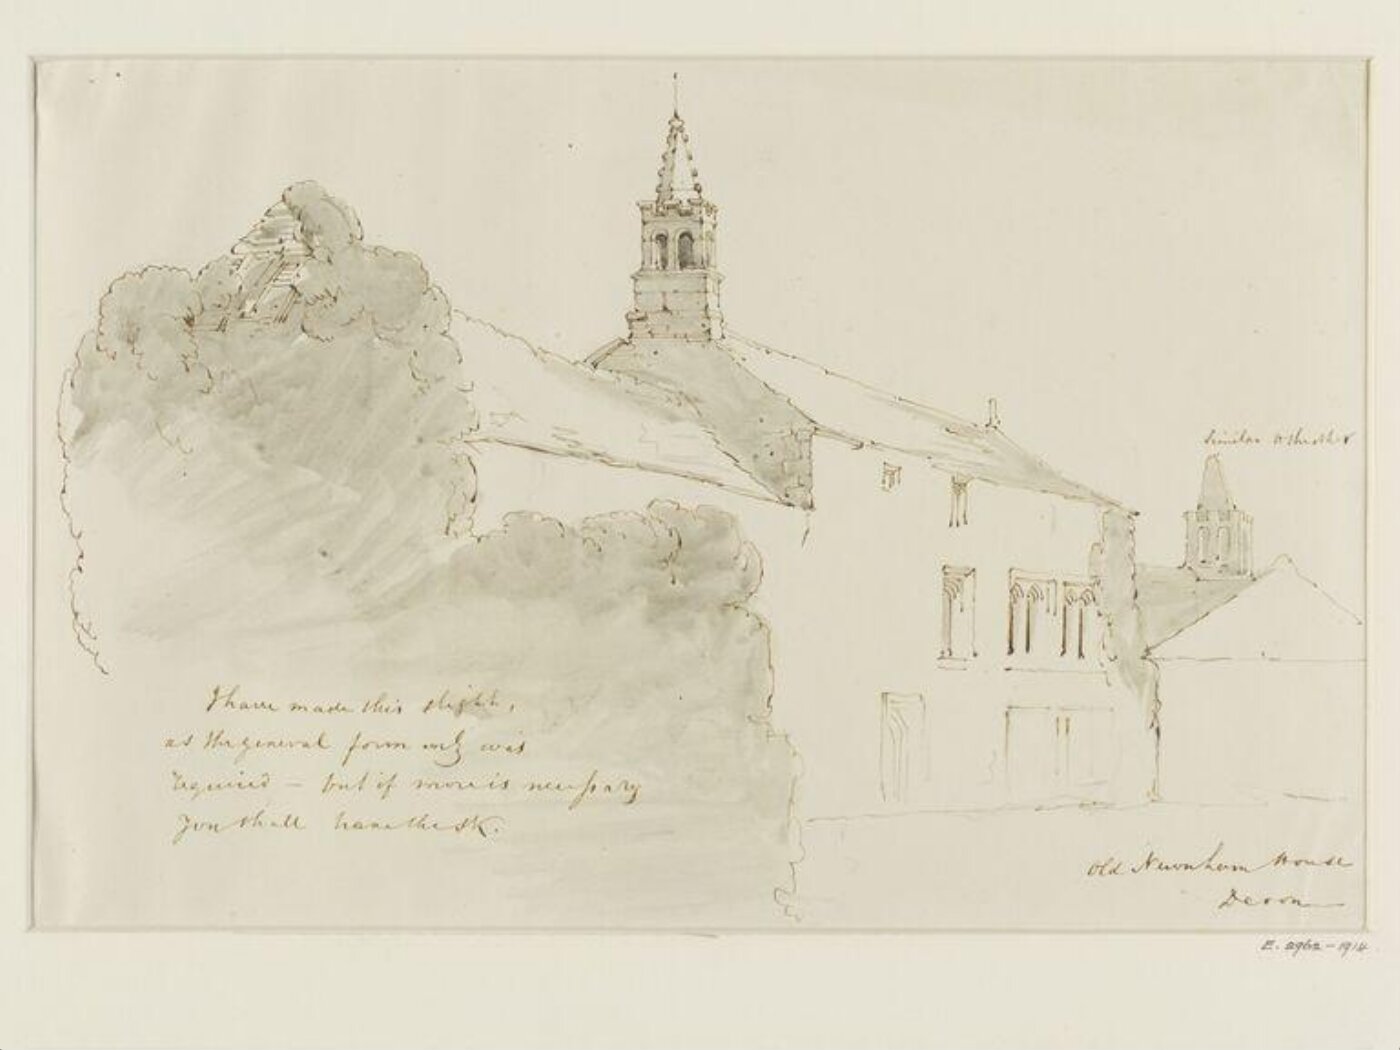 Similar to the other
I have made this slight,
as the general form only was
required – but if more is necessary
you shall have the sk.
Old Newnham House
Devon
E. 2962-1914